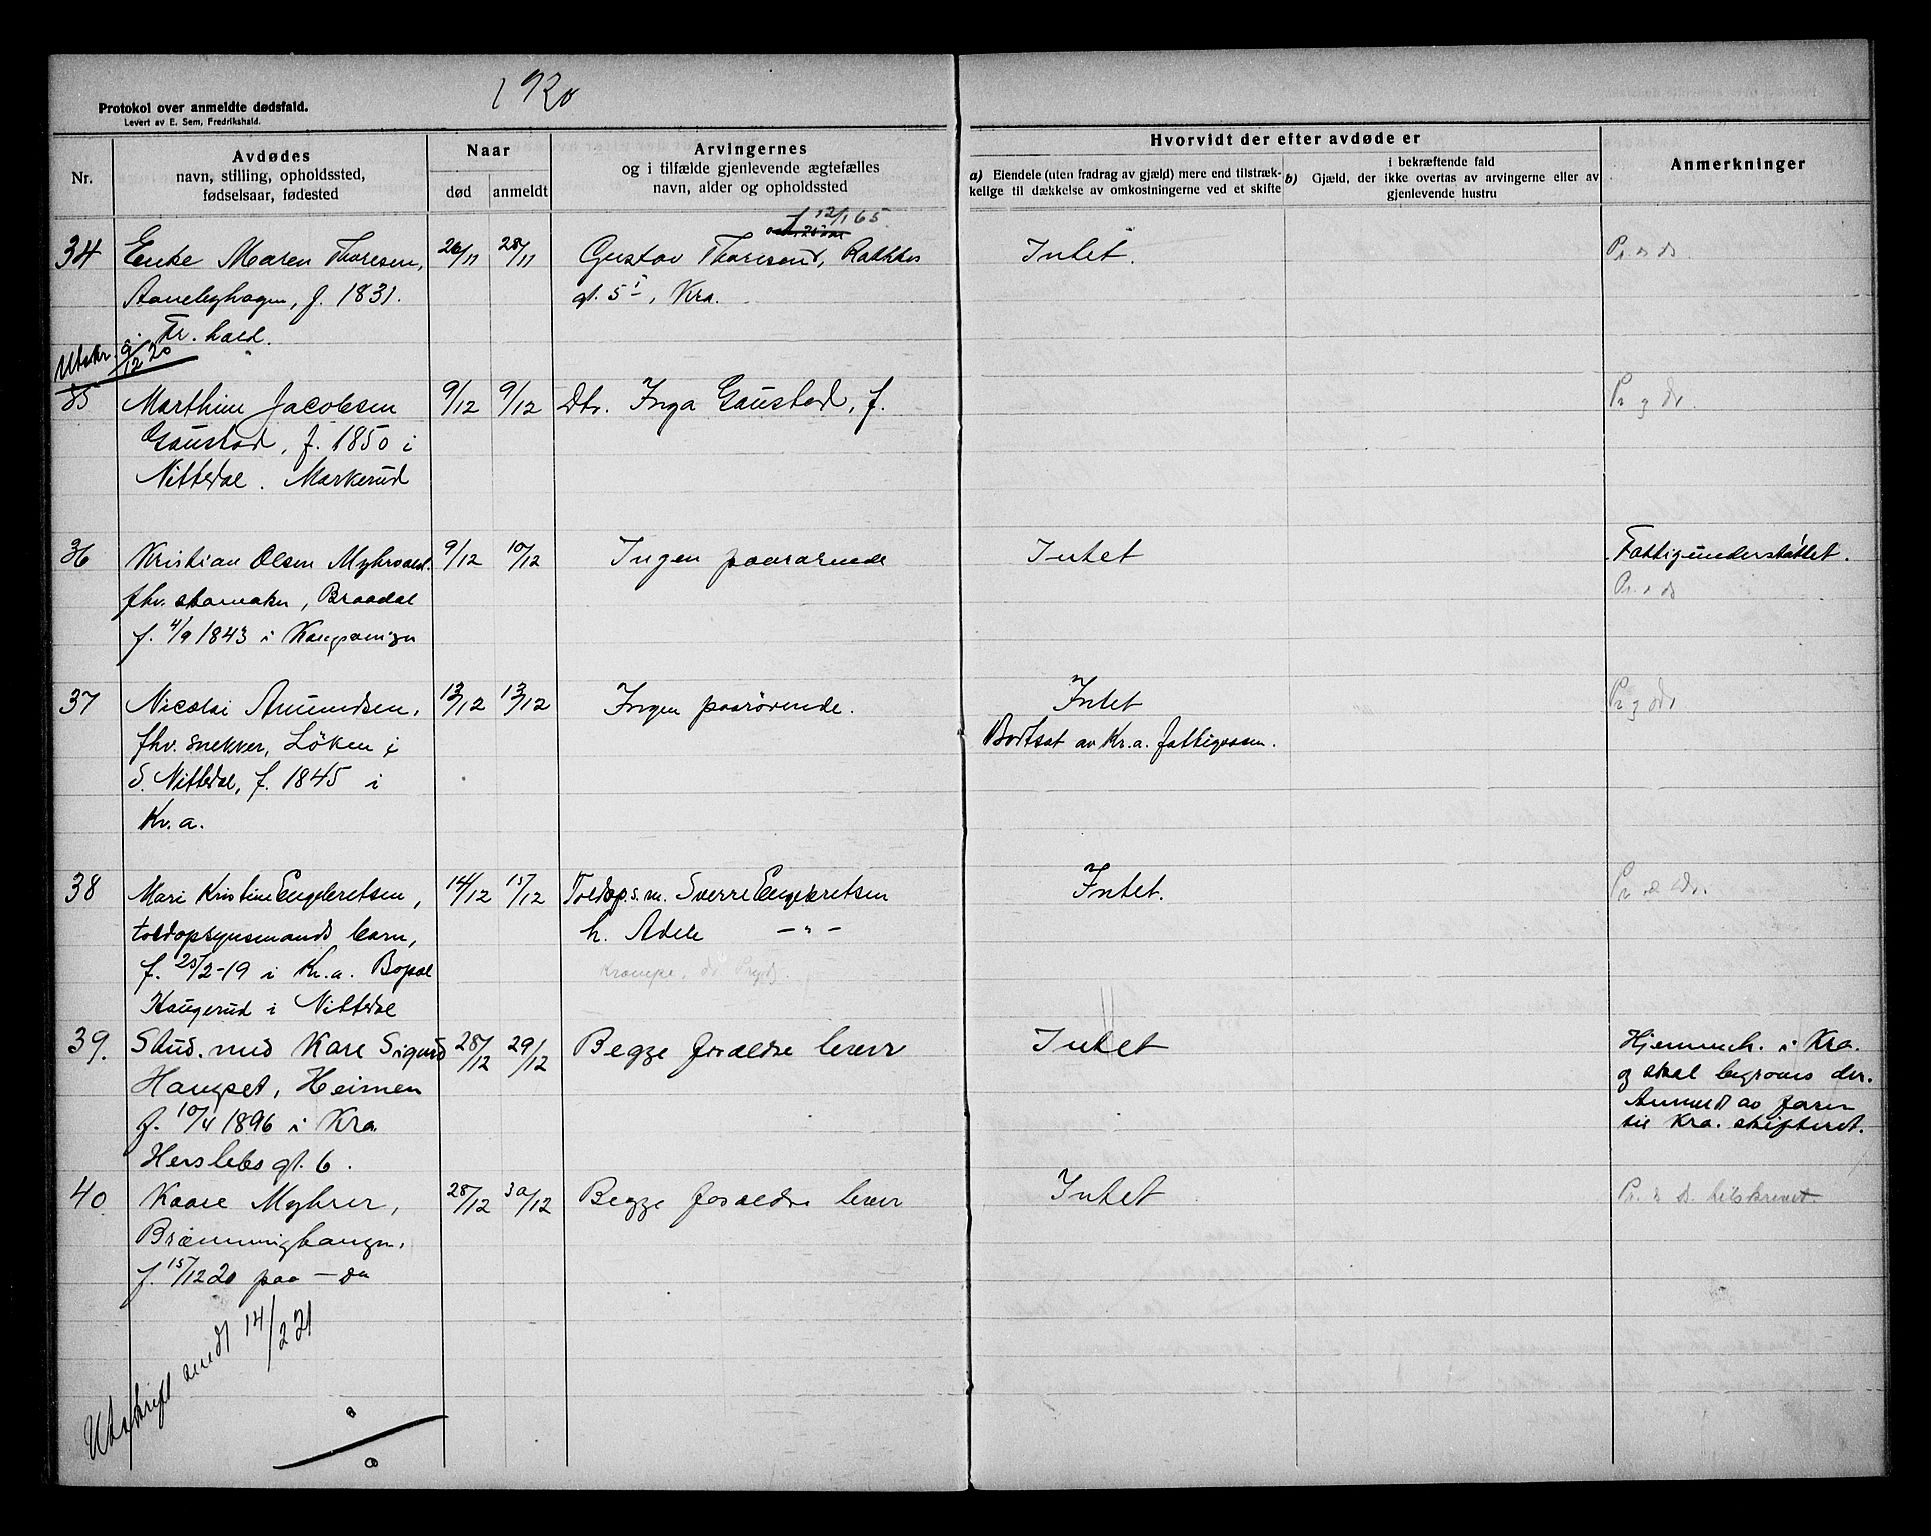 1920
Protokol over anmeldte dødsfald.
Levert av E. Sem, Fredrikshald.
Nr.
Avdødes
navn, stilling, opholdssted,
fødselsaar, fødested
Naar
død
anmeldt
Arvingernes
og i tilfælde gjenlevende ægtefælles
navn, alder og opholdssted
Hvorvidt der efter avdøde er
a) Eiendele (uten fradrag av gjæld) mere end tilstræk-
kelige til dækkelse av omkostningerne ved et skifte
i bekræftende fald
b) Gjæld, der ikke overtas av arvingerne eller av
gjenlevende hustru
Anmerkninger
f. 12/1 65
34 Enke Maren Thoresen, 26/11 28/11 Gustav Thoresen, Intet. Pr. & ds.
Aanebyhagen, f. 1831. gt. 5 I, Kra.
i Fr.hald.
Utskr. 9/12 20
35 Marthine Jacobsen 9/12 9/12 Dtr. Inga Gaustad, f. Pr og dr.
Gaustad, f. 1850 i
Nittedal. Markerud
36 Kristian Olsen Myhrvold. 9/12 10/12 Ingen paarørende Intet Fattigunderstøttet.
fhv. skomaker, Braadal Pr. & ds
f. 4/9 1843 i Kongsvinger
37 Nicolai Amundsen, 13/12 13/12 Ingen paarørende. Intet Pr og dr
fhv. snekker, Löken i Bortsat av Kr.a. fattigvæsen.
S. Nittedal, f. 1845 i
Kr.a.
38 Mari Kristine Engebretsen, 14/12 15/12 Toldops.m. Sverre Engebretsen Intet. Pr & Dr.
toldopsynsmands barn, h. Adele — " —
f. 25/2-19 i Kr.a. Bopæl
Haugerud i Nittedal
39. Stud. med Kare Sigurd 28/12 29/12 Begge forældre lever Intet Hjemmeh. i Kra.
Haugset, Heimen og skal begraves der.
f. 10/4 1896 i Kra. Anmeldt av faren
Herslebs gt. 6. til Kra. skifteret.
40 Kaare Myhrer, 28/12 30/12 Begge forældre lever Intet Pr. & D. tilskrevet
f. 15/12 20 paa — da
Utskrift sendt 14/2 21